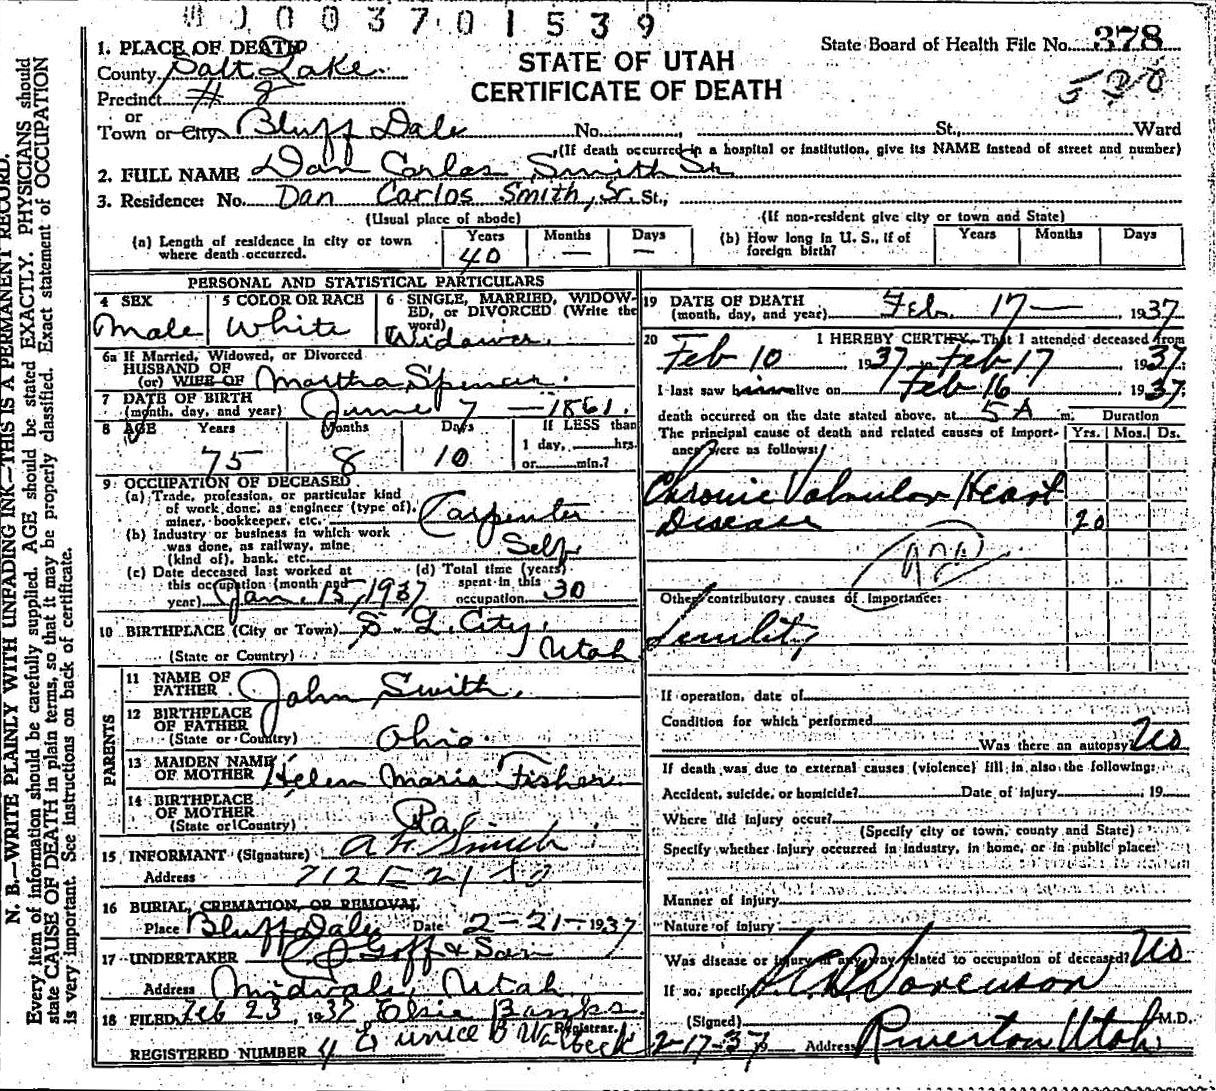 0003701539
State Board of Health File No. 378
530
STATE OF UTAH
CERTIFICATE OF DEATH
1. PLACE OF DEATH
County Salt Lake
Precinct # 8
or
Town or City Bluff Dale No. St., Ward
(If death occurred in a hospital or institution, give its NAME instead of street and number)
2. FULL NAME Dan Carlos Smith Sr
3. Residence: No. Dan Carlos Smith, Sr. St.,
(Usual place of abode) (If non-resident give city or town and State)
(a) Length of residence in city or town where death occurred. Years 40 Months — Days —
(b) How long in U. S., if of foreign birth? Years Months Days
PERSONAL AND STATISTICAL PARTICULARS
4 SEX Male
5 COLOR OR RACE White
6 SINGLE, MARRIED, WIDOWED, or DIVORCED (Write the word) Widower
6a If Married, Widowed, or Divorced
HUSBAND OF
(or) WIFE OF Martha Spencer.
7 DATE OF BIRTH
(month, day, and year) June 7 — 1861.
8 AGE Years 75 Months 8 Days 10 If LESS than 1 day, hrs. or min.?
9 OCCUPATION OF DECEASED
(a) Trade, profession, or particular kind of work done, as engineer (type of), miner, bookkeeper, etc. Carpenter
(b) Industry or business in which work was done, as railway, mine (kind of), bank, etc. Self
(c) Date deceased last worked at this occupation (month and year) Jan. 15, 1937
(d) Total time (years) spent in this occupation 30
10 BIRTHPLACE (City or Town) S. L. City,
(State or Country) Utah
PARENTS
11 NAME OF FATHER John Smith,
12 BIRTHPLACE OF FATHER (State or Country) Ohio
13 MAIDEN NAME OF MOTHER Helen Maria Fisher
14 BIRTHPLACE OF MOTHER (State or Country) Pa
15 INFORMANT (Signature) A F Smith
Address 712 E 21 So
16 BURIAL, CREMATION, OR REMOVAL
Place Bluff Dale Date 2-21-1937
17 UNDERTAKER Goff & Son
Address Midvale, Utah
18 FILED Feb 23, 1937 Elsie Banks
Registrar.
Eunice B
REGISTERED NUMBER 4
19 DATE OF DEATH
(month, day, and year) Feb. 17 — 1937
20 I HEREBY CERTIFY, That I attended deceased from
Feb 10 1937 Feb 17 1937
I last saw him alive on Feb 16 1937.
death occurred on the date stated above, at 5 A m. Duration
The principal cause of death and related causes of importance were as follows: Yrs. Mos. Ds.
Chronic Valvular Heart
Disease 20
Other contributory causes of importance:
Senility
If operation, date of
Condition for which performed
Was there an autopsy? No
If death was due to external causes (violence) fill in also the following:
Accident, suicide, or homicide? Date of injury 19
Where did injury occur?
(Specify city or town, county and State)
Specify whether injury occurred in industry, in home, or in public place:
Manner of injury
Nature of injury
Was disease or injury in any way related to occupation of deceased? No
If so, specify
(Signed) Sorenson M.D.
2-17-37 19 Address Riverton Utah
N. B.—WRITE PLAINLY WITH UNFADING INK—THIS IS A PERMANENT RECORD.
Every item of information should be carefully supplied. AGE should be stated EXACTLY. PHYSICIANS should
state CAUSE OF DEATH in plain terms, so that it may be properly classified. Exact statement of OCCUPATION
is very important. See instructions on back of certificate.